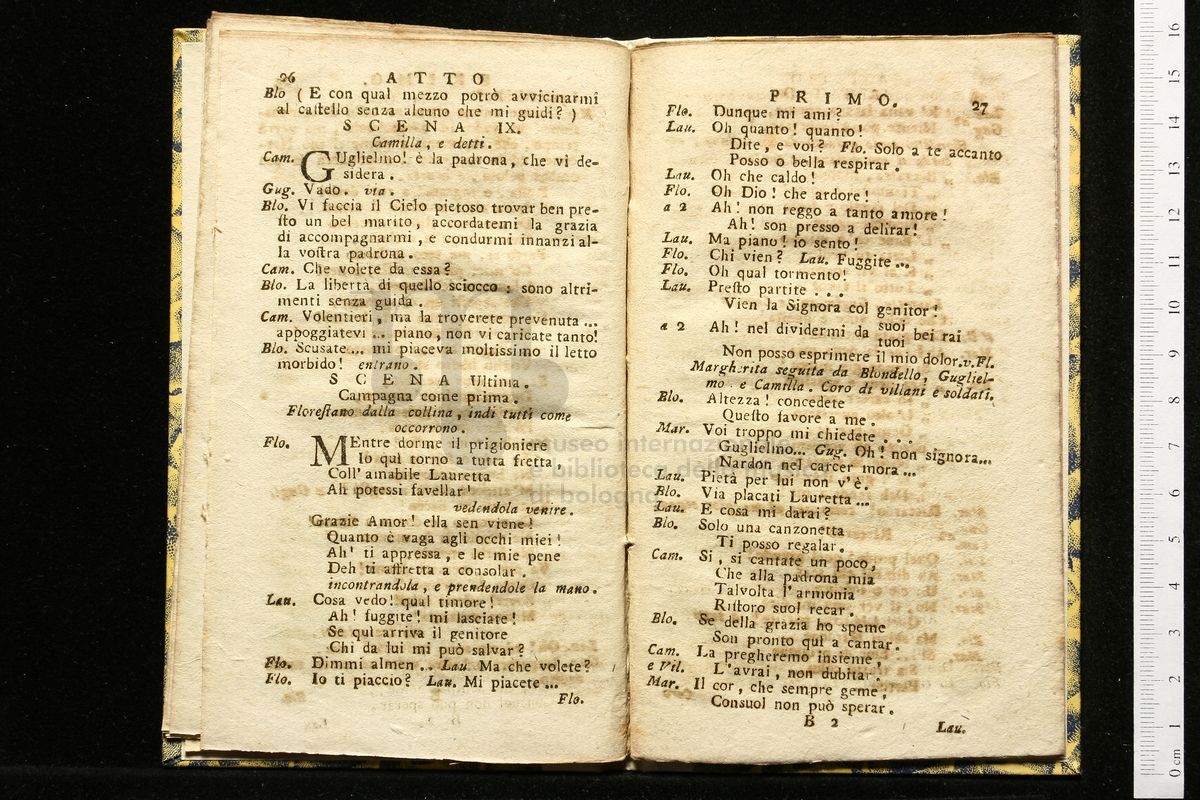 26 A T T O
Blo ( E con qual mezzo potrò avvicinarmi
al caſtello senza alcuno che mi guidi? )
S C E N A IX.
Camilla, e detti.
Cam. GUglielmo! è la padrona, che vi de-
sidera.
Gug. Vado. via.
Blo. Vi faccia il Cielo pietoso trovar ben pre-
ſto un bel marito, accordatemi la grazia
di accompagnarmi, e condurmi innanzi al-
la voſtra padrona.
Cam. Che volete da essa?
Blo. La libertà di quello sciocco: sono altri-
menti senza guida.
Cam. Volentieri, ma la troverete prevenuta ...
appoggiatevi .. piano, non vi caricate tanto!
Blo. Scusate ... mi piaceva moltissimo il letto
morbido! entrano.
S C E N A Ultima.
Campagna come prima.
Floreſtano dalla collina, indi tutti come
occorrono.
Flo. MEntre dorme il prigioniere
Io quì torno a tutta fretta,
Coll' amabile Lauretta
Ah potessi favellar!
vedendola venire.
Grazie Amor! ella sen viene!
Quanto è vaga agli occhi miei!
Ah! ti appressa, e le mie pene
Deh! ti affretta a consolar.
incontrandola, e prendendole la mano.
Lau. Cosa vedo! qual timore!
Ah! fuggite! mi lasciate!
Se quì arriva il genitore
Chi da lui mi può salvar?
Flo. Dimmi almen .. Lau. Ma che volete?
Flo. Io ti piaccio? Lau. Mi piacete ...
Flo.
P R I M O. 27
Flo. Dunque mi ami?
Lau. Oh quanto! quanto!
Dite, e voi? Flo. Solo a te accanto
Posso o bella respirar.
Lau. Oh che caldo!
Flo. Oh Dio! che ardore!
a 2 Ah! non reggo a tanto amore!
Ah! son presso a delirar!
Lau. Ma piano! io sento!
Flo. Chi vien? Lau. Fuggite ...
Flo. Oh qual tormento!
Lau. Preſto partite ...
Vien la Signora col genitor!
a 2 Ah! nel dividermi da suoi bei rai
tuoi
Non posso esprimere il mio dolor. v. Fl.
Margherita seguita da Blondello, Gugliel-
mo. e Camilla. Coro di villani e soldati.
Blo. Altezza! concedete
Queſto favore a me.
Mar. Voi troppo mi chiedete ....
Guglielmo... Gug. Oh! non signora...
Nardon nel carcer mora ...
Lau. Pietà per lui non v'è.
Blo. Via placati Lauretta ...
Lau. E cosa mi darai?
Blo. Solo una canzonetta
Ti posso regalar.
Cam. Si, si cantate un poco,
Che alla padrona mia
Talvolta l'armonia
Riſtoro suol recar.
Blo. Se della grazia ho speme
Son pronto quì a cantar.
Cam. La pregheremo insieme,
e Vil. L'avrai, non dubitar.
Mar. Il cor, che sempre geme,
Consuol non può sperar.
B 2 Lau.
museo internazionale
e biblioteca della musica
di bologna
16
15
14
13
12
11
10
9
8
7
6
5
4
3
2
1
0 cm